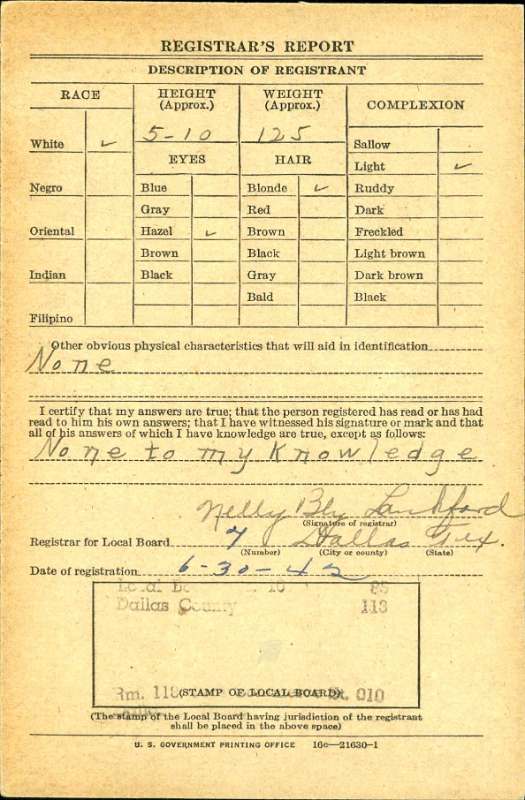 REGISTRAR'S REPORT
DESCRIPTION OF REGISTRANT
RACE
HEIGHT (Approx.)
WEIGHT (Approx.)
COMPLEXION
5-10
125
White ✓
Sallow
EYES
HAIR
Light ✓
Negro
Blue
Blonde ✓
Ruddy
Gray
Red
Dark
Oriental
Hazel ✓
Brown
Freckled
Brown
Black
Light brown
Indian
Black
Gray
Dark brown
Bald
Black
Filipino
Other obvious physical characteristics that will aid in identification
None
I certify that my answers are true; that the person registered has read or has had
read to him his own answers; that I have witnessed his signature or mark and that
all of his answers of which I have knowledge are true, except as follows:
None to my knowledge
Nelly Bly Lankford
(Signature of registrar)
Registrar for Local Board 7 Dallas Tex.
(Number) (City or county) (State)
Date of registration 6-30-42
Local 10 85
Dallas County 113
Rm. 010
(STAMP OF LOCAL BOARD)
(The stamp of the Local Board having jurisdiction of the registrant
shall be placed in the above space)
U. S. GOVERNMENT PRINTING OFFICE 16c—21630-1